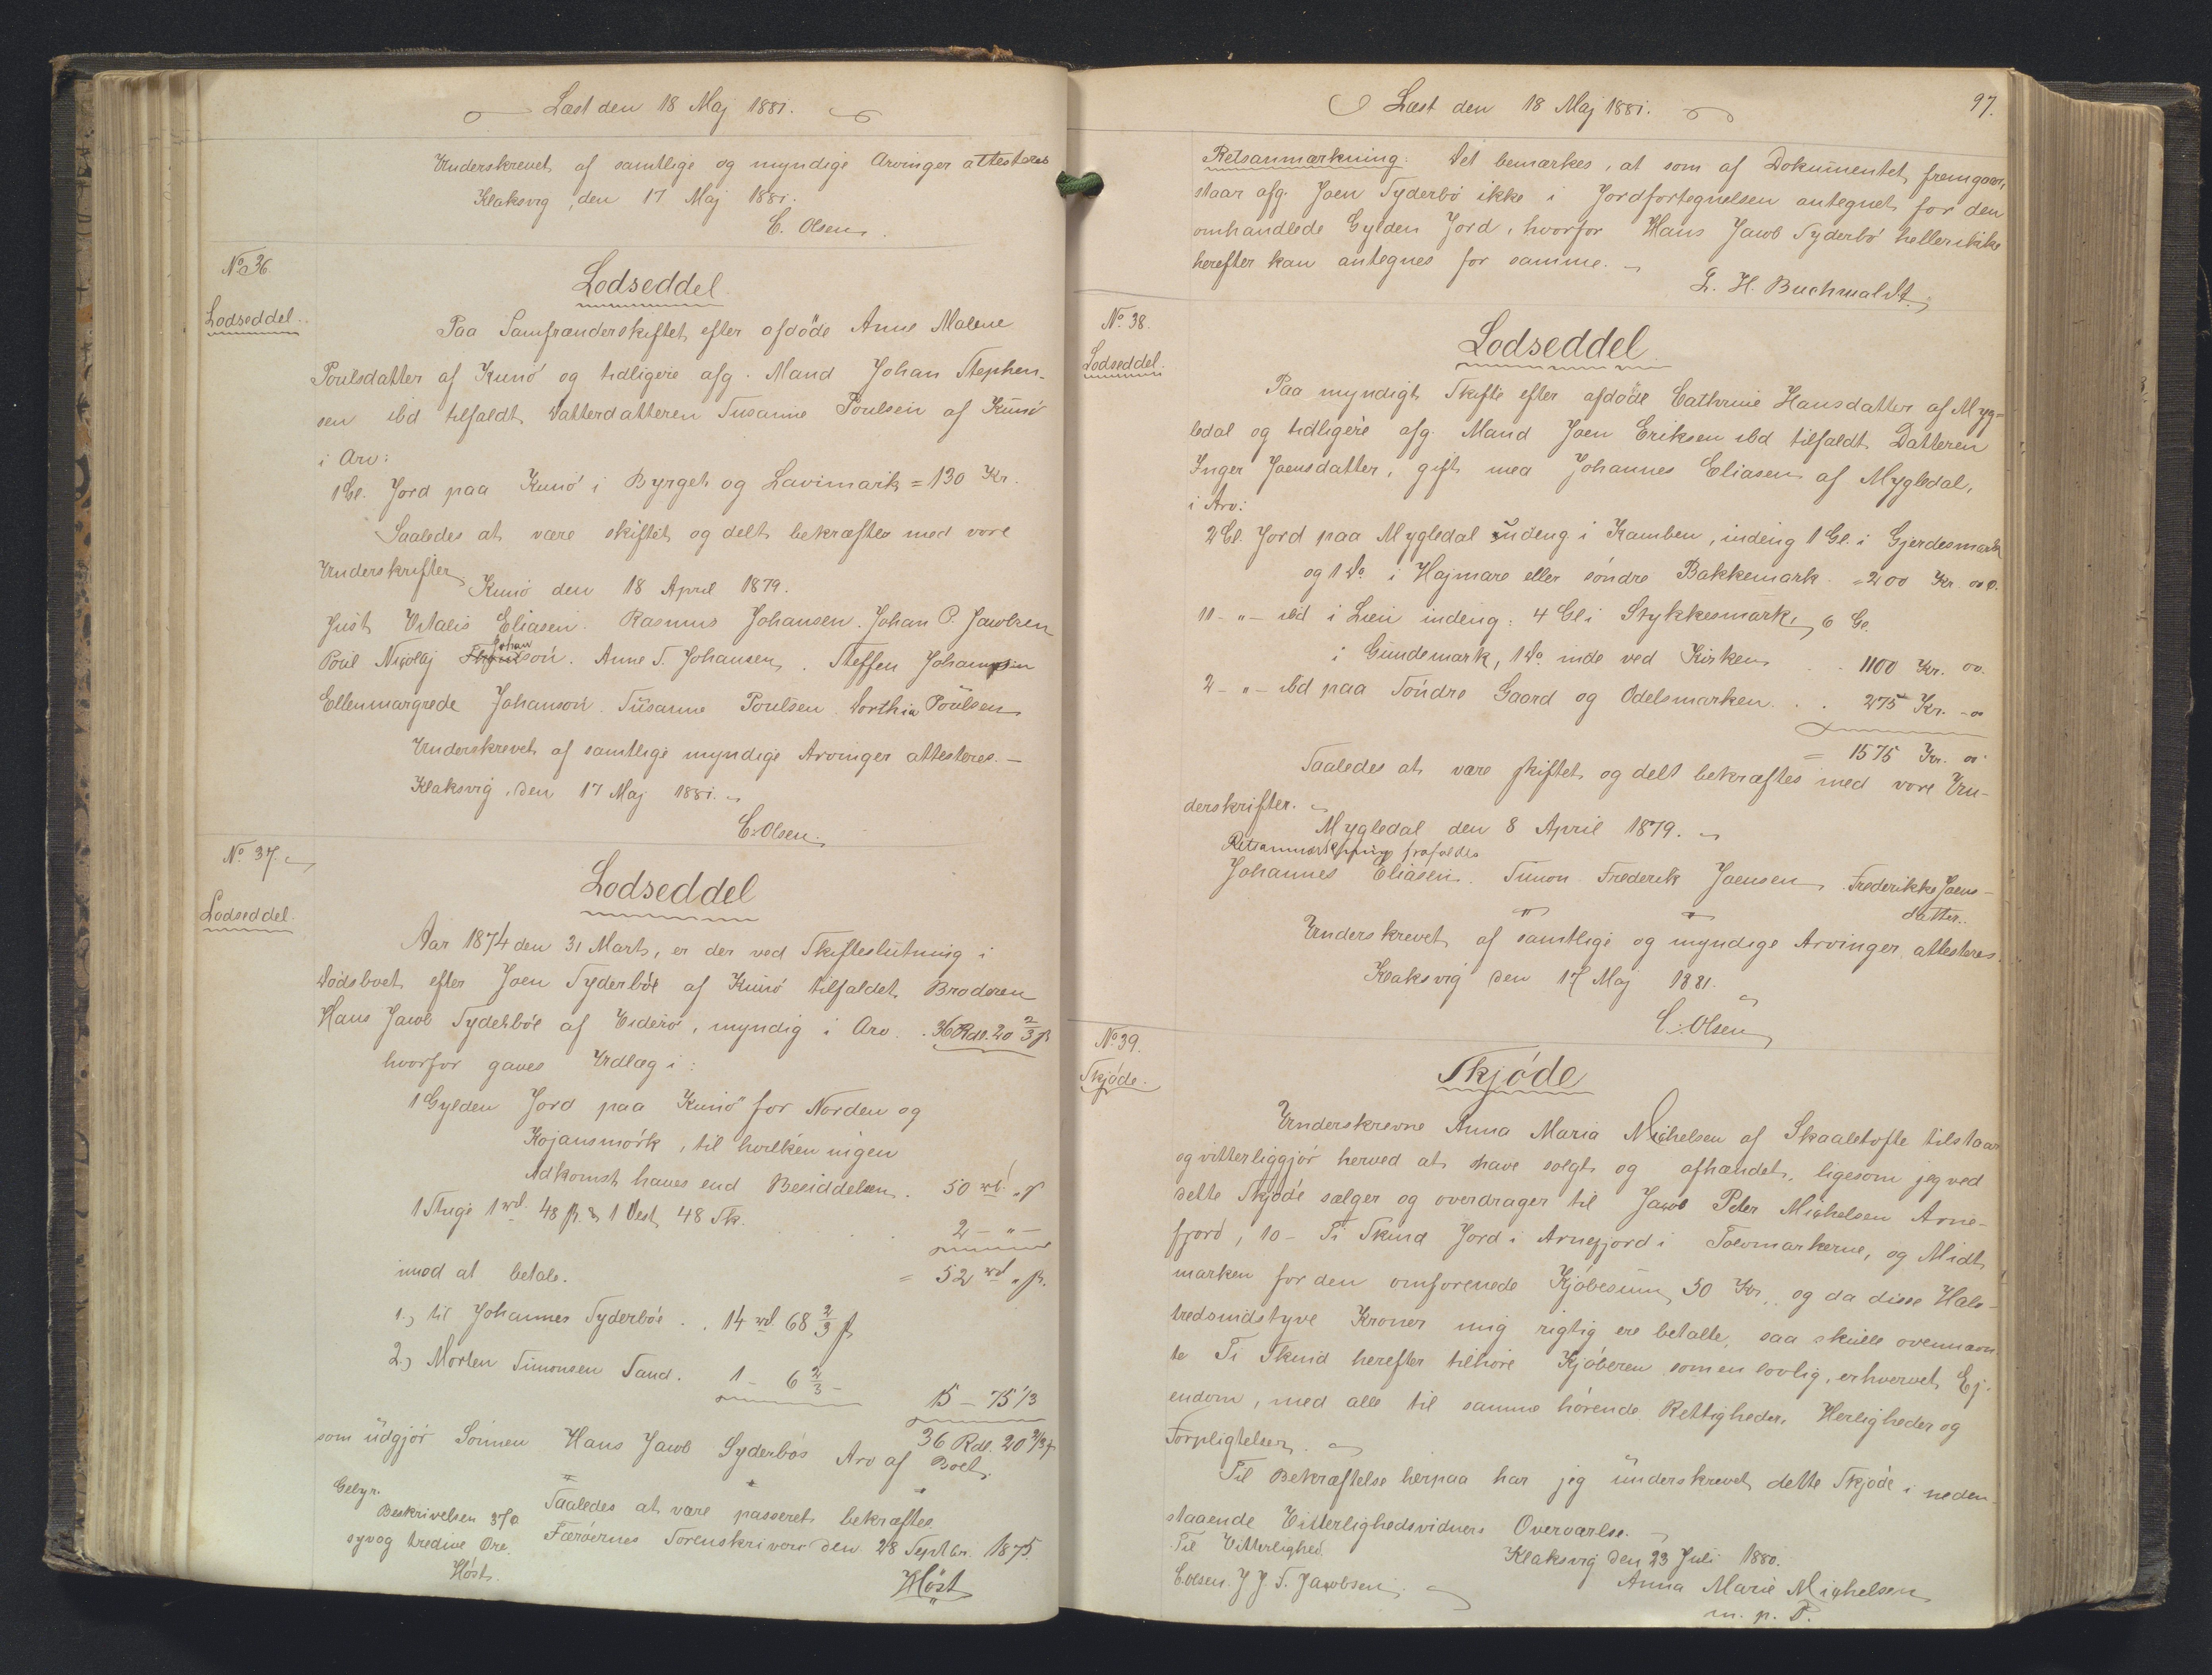 Læst den 18 Maj 1881.
Underskrevet af samtlige og myndige Arvinger attesteres
Klaksvig, den 17 Maj 1881.
C. Olsen.
No 36.
Lodseddel.
Lodseddel.
Paa Samfrænderskiftet efter afdöde Anne Malene
Poulsdatter af Kunö og tidligere afg. Mand Johan Stephen-
sen ibd tilfaldt Datterdatteren Susanne Poulsen af Kunö
i Arv:
1 Gl. Jord paa Kunö i Byrget og Lavimark = 130 Kr.
Saaledes at være skiftet og delt bekræftes med vore
Underskrifter
Kunö den 18 April 1879.
Just Vitalis Eliasen. Rasmus Johansen. Johan P. Jacobsen
Poul Nicolaj Johansön. Anne S. Johansen. Steffen Johansen
Ellenmargrede Johansön. Susanne Poulsen. Dorthia Poulsen
Underskrevet af samtlige myndige Arvinger attesteres. –
Klaksvig, den 17 Maj 1881.
C. Olsen.
No. 37.
Lodseddel.
Lodseddel
Aar 1874 den 31 Marts, er der ved Skifteslutning i
Dödsboet efter Joen Syderböe af Kunö tilfaldet Broderen
Hans Jacob Syderböe af Viderö, myndig i Arv. . 36 Rdl. 20 2/3 ß
hvorfor gaves Udlæg i:
1 Gylden Jord paa Kunö for Norden og
Kojansmörk, til hvilken ingen
Adkomst haves end Besiddelsen. 50 rd. " ß
1 Stuge 1 rd. 48 ß. & 1 Vest 48 Sk. . . . 2 - " -
= 52 rd " ß.
imod at betale.
1., til Johannes Syderböe . . 14 rd 68 2/3 ß
2., Morten Simonsen Sand. 1 - 6 2/3 -
15 - 75 1/3
36 Rdl. 20 2/3 ß
som udgjör Sönnen Hans Jacob Syderbös Arv af Boet.
Saaledes at være passeret bekræftes
Færöernes Sorenskriveri den 28 Septbr. 1875.
Höst
Gebyr.
Beskrivelsen 37 ø
syvog tredive Öre.
Höst.
Læst den 18 Maj 1881.
97.
Retsanmærkning: Det bemærkes, at som af Dokumentet fremgaar,
staar afg. Joen Syderbö ikke i Jordfortegnelsen antegnet for den
omhandlede Gylden Jord, hvorfor Hans Jacob Syderbö heller ikke
herefter kan antegnes for samme. –
L. H. Buchwaldt.
No. 38.
Lodseddel.
Lodseddel.
Paa myndigt Skifte efter afdöde Cathrine Hansdatter af Myg-
ledal og tidligere afg. Mand Joen Eriksen ibd tilfaldt Datteren
Inger Joensdatter, gift med Johannes Eliasen af Mygledal,
i Arv:
2 Gl. Jord paa Mygledal udeng i Kamben, indeng 1 Gl. i Gjerdesmark
og 1 Do i Hajmare eller söndre Bakkemark = 200 Kr. oo ø.
11 - " - ibd i Lien indeng: 4 Gl i Stykkesmark, 6 Gl.
i Gundemark, 1 Do inde ved Kirken . . 1100 Kr. oo.
2 - " - ibd paa Söndre Gaard og Odelsmarken . . 275 Kr. - oo
= 1575 Kr. oo
Saaledes at være skiftet og delt bekræftes med vore Un-
derskrifter.
Mygledal den 8 April 1879.
Retsanmærkning frafaldes
Johannes Eliasen. Simon Frederik Joensen. Frederikke Joens-
datter.
Underskrevet af samtlige og myndige Arvinger attesteres.
Klaksvig den 17 Maj 1881.
C. Olsen
No. 39.
Skjöde.
Skjöde
Underskrevne Anna Maria Michelsen af Skaaletofte tilstaar
og vitterliggjör herved at have solgt og afhændet, ligesom jeg ved
dette Skjöde sælger og overdrager til Jacob Peter Michelsen Arne-
fjord, 10 - Ti Skind Jord i Arnefjord i Toevmarkerne, og Midt
marken for den omforenede Kjöbesum 50 Kr. og da disse Halv-
tredsindstyve Kroner mig rigtig ere betalte, saa skulle ovennævn-
te Ti Skind herefter tilhöre Kjöberen som en lovlig, erhvervet Ej-
endom, med alle til samme hörende Rettigheder, Herligheder og
Forpligtelser.
Til Bekræftelse herpaa har jeg underskrevet dette Skjöde i neden-
staaende Vitterlighedsvidners Overværelse.
Klaksvig den 23 Juli 1880.
Anna Marie Michelsen
m. p. P.
Til Vitterlighed.
C. Olsen. J. J. S. Jacobsen.